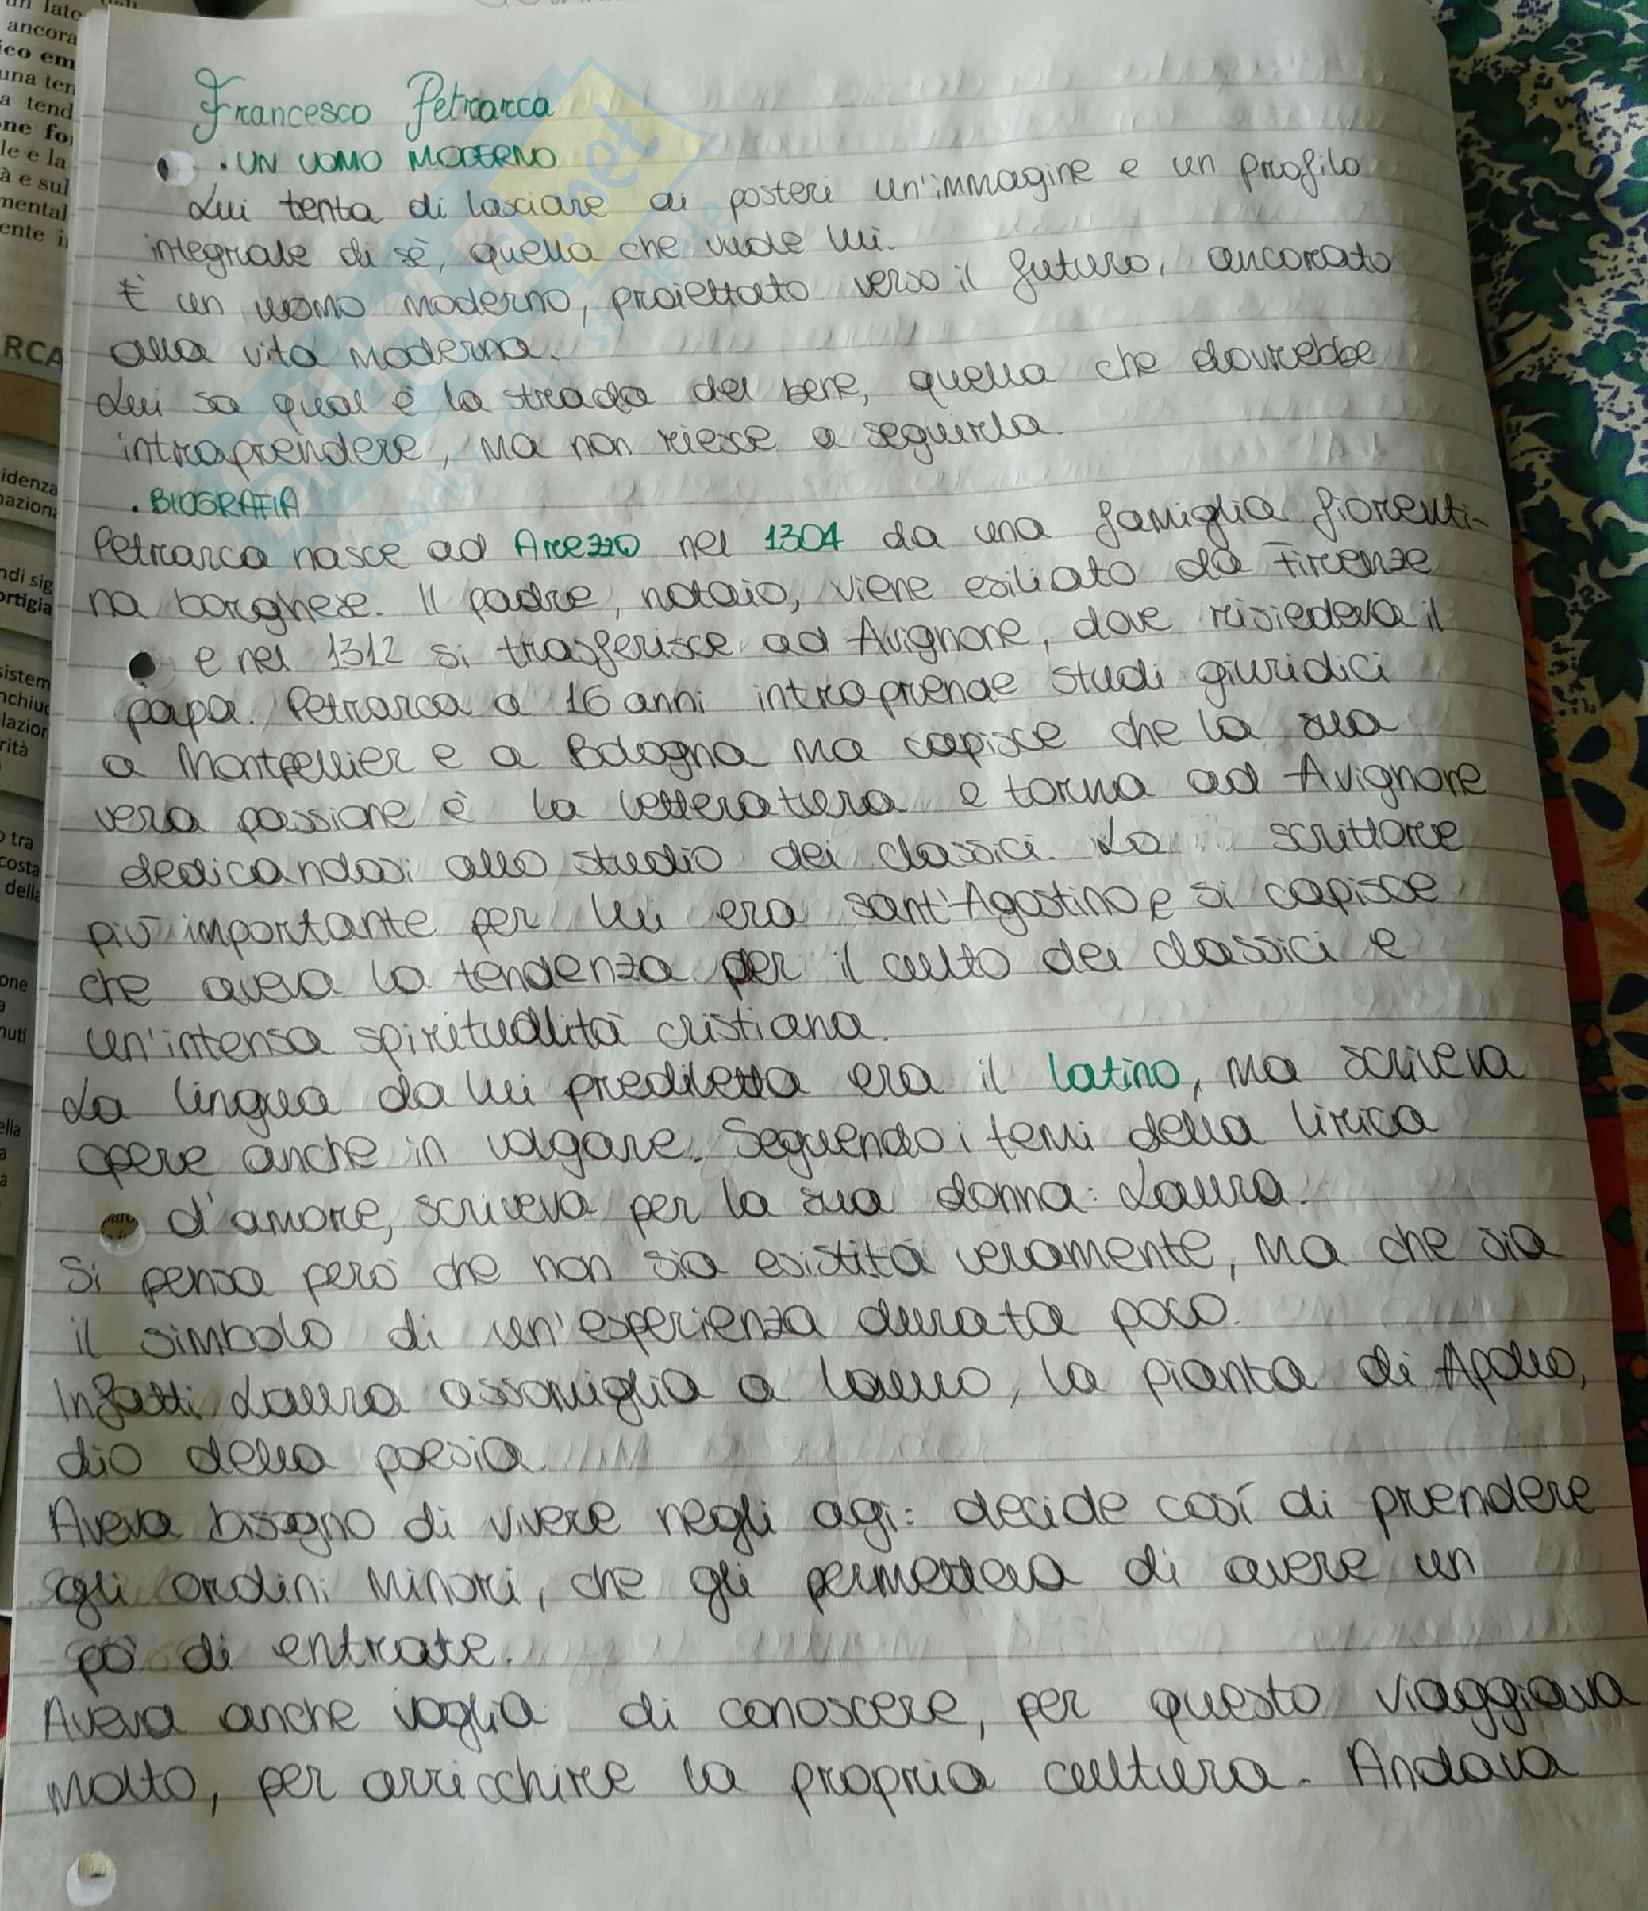 Francesco Petrarca
. UN UOMO MODERNO
Lui tenta di lasciare ai posteri un'immagine e un profilo
integrale di sè, quella che vuole lui.
È un uomo moderno, proiettato verso il futuro, ancorato
alla vita moderna.
Lui sa qual è la strada del bene, quella che dovrebbe
intraprendere, ma non riesce a seguirla.
. BIOGRAFIA
Petrarca nasce ad Arezzo nel 1304 da una famiglia fiorenti-
na borghese. Il padre, notaio, viene esiliato da Firenze
e nel 1312 si trasferisce ad Avignone, dove risiedeva il
papa. Petrarca a 16 anni intraprende studi giuridici
a Montpellier e a Bologna ma capisce che la sua
vera passione è la letteratura e torna ad Avignone
dedicandosi allo studio dei classici. Lo scrittore
più importante per lui era sant'Agostino e si capisce
che aveva la tendenza per il culto dei classici e
un'intensa spiritualità cristiana.
La lingua da lui prediletta era il latino, ma scriveva
opere anche in volgare. Seguendo i temi della lirica
d'amore, scriveva per la sua donna: Laura.
Si pensa però che non sia esistita veramente, ma che sia
il simbolo di un'esperienza durata poco.
Infatti Laura assomiglia a lauro, la pianta di Apollo,
dio della poesia.
Aveva bisogno di vivere negli agi: decide così di prendere
gli ordini minori, che gli permetteva di avere un
pò di entrate.
Aveva anche voglia di conoscere, per questo viaggiava
molto, per arricchire la propria cultura. Andava
un lato
ancora
ico em
una ten
a tend
ne fo
le e la
à e sul
mental
ente i
RCA
idenza
nazion
ndi sig
ortigia
sistem
nchiu
lazion
rità
o tra
costa
della
one
nuti
ella